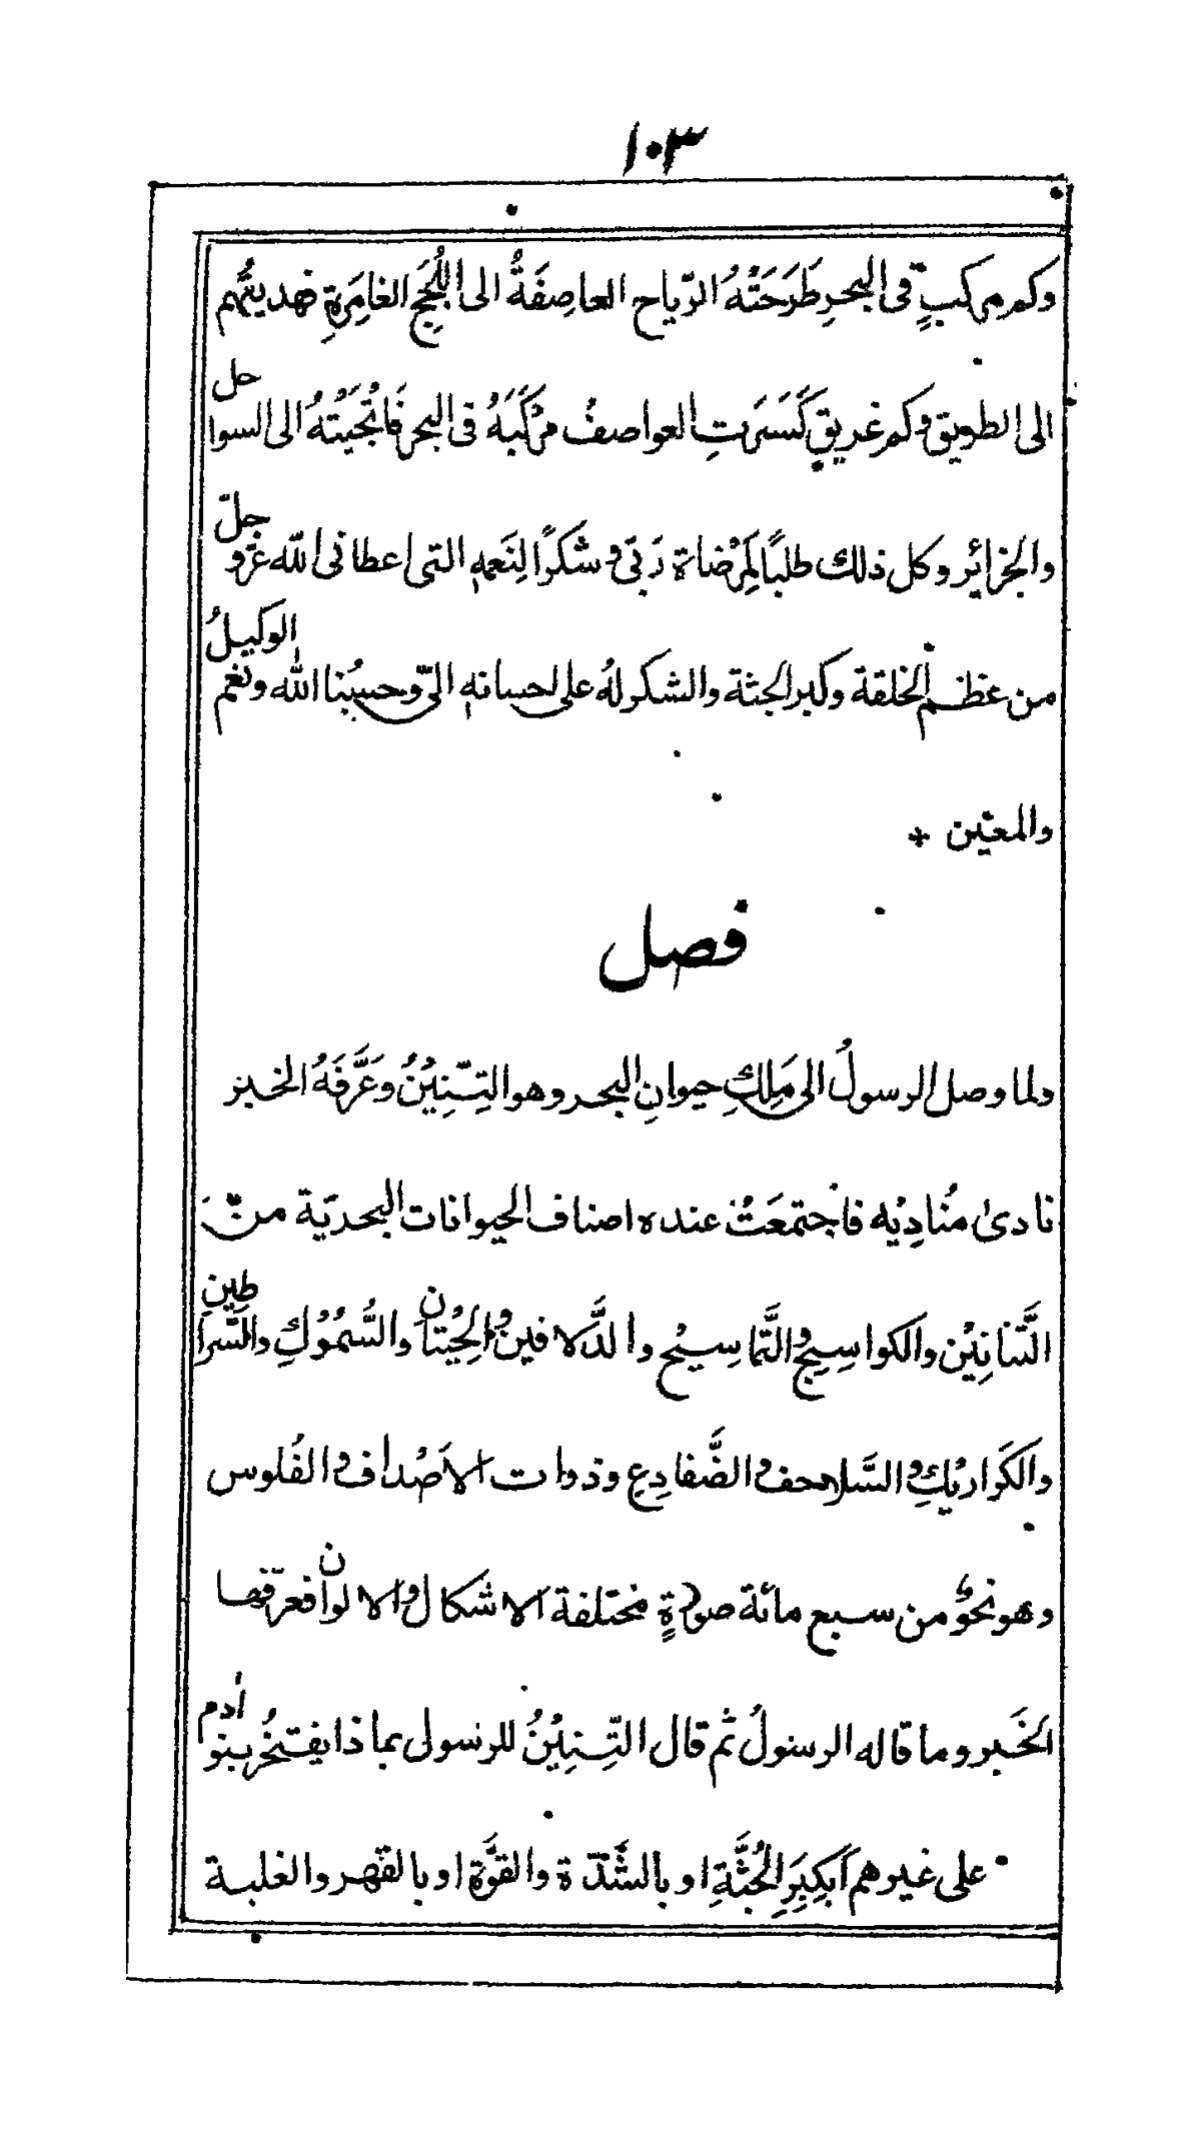 ١٠٣
وكم مركبٍ فى البحرِ طَرَحَتْهُ الرّياح العاصِفَةُ الى اللُّجَجِ الغامِرَةِ فهديتُهم
الى الطريق وكم غريقٍ كَسَرَتِ العواصفُ مَرْكَبَهُ فى البحر فَانْجَيْتُهُ الى السواحل
والجزائر وكل ذلك طلبًا لِمَرْضاة رَبّى وشكرًا لِنَعمِهِ التى اعطانى الله عزّ و جلّ
من عظم الخلقة وكبر الجثة والشكر لهُ على احسانهِ الىّ وحسبُنا الله ونعم الوكيلُ
والمعين +
فصل
ولما وصل الرسولُ الى مَلِكِ حيوانِ البحر وهو التِّنِيْنُ وَعَرَّفَهُ الخبر
نادىٰ مُنادِيْه فاجتمعَتْ عنده اصناف الحيوانات البحريّة من
التَّنانِيْن والكواسِيج والتَّماسِيْح والدَّلافين والحِيْتان والسُّمُوْكِ والسَّراطِين
والكَرارِيْكِ والسَّلاحف والضَّفادِعِ وذوات الاَصْداف والفُلوس
وهو نحوٌ من سبع مائة صورةٍ مختلفة الاشكال والالوان فعرّفها
الخَبر وما قاله الرسولُ ثم قال التِّنِيْنُ للرسول بماذا يفتخرُ بنو اٰدم
على غيرهم اَبكِبَرِ الجُثَّةِ او بالشَّدّة والقوَّة او بالقهر والغلبة